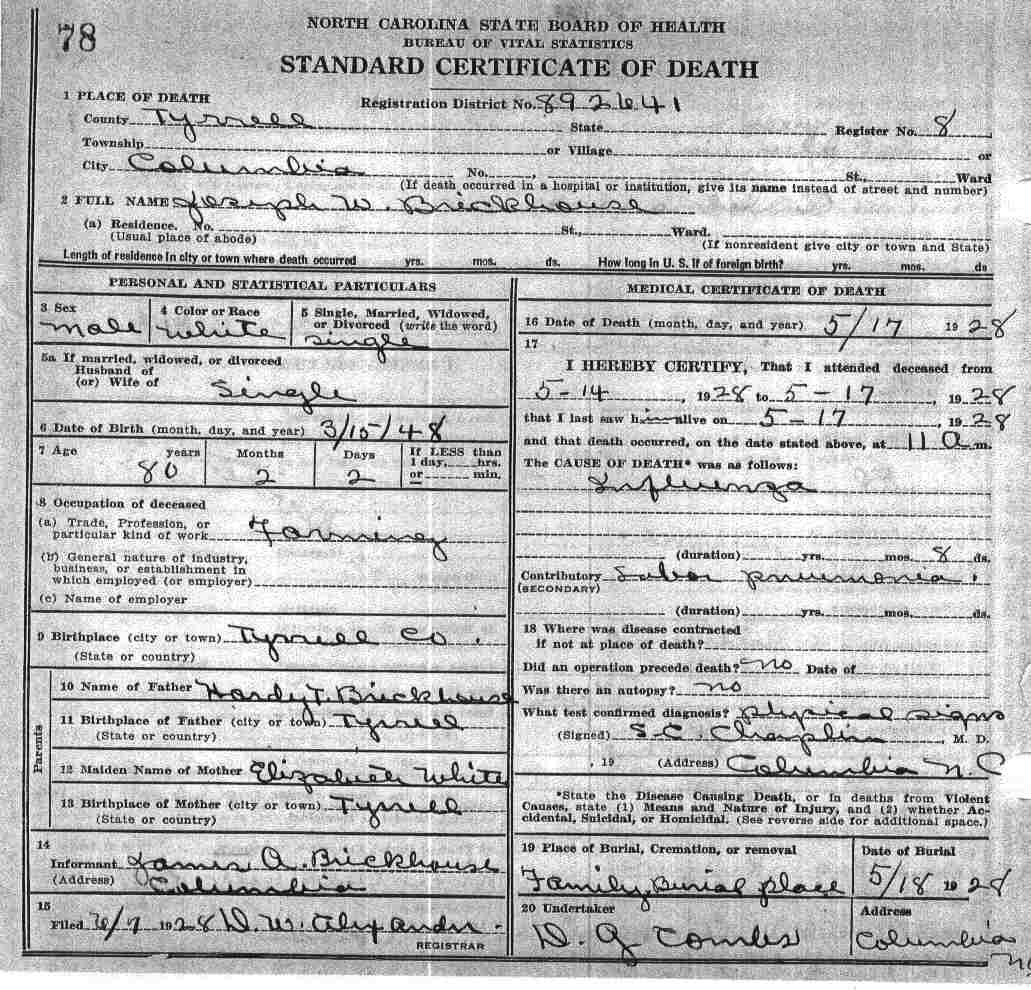 78
NORTH CAROLINA STATE BOARD OF HEALTH
BUREAU OF VITAL STATISTICS
STANDARD CERTIFICATE OF DEATH
1 PLACE OF DEATH
Registration District No. 892641
County Tyrrell State Register No. 8
Township or Village or
City Columbia No. , St., Ward
(If death occurred in a hospital or institution, give its name instead of street and number)
2 FULL NAME Joseph W. Brickhouse
(a) Residence. No. St., Ward.
(Usual place of abode) (If nonresident give city or town and State)
Length of residence in city or town where death occurred yrs. mos. ds. How long in U. S. if of foreign birth? yrs. mos. ds
PERSONAL AND STATISTICAL PARTICULARS
3 Sex 4 Color or Race 5 Single, Married, Widowed,
or Divorced (write the word)
male white single
5a If married, widowed, or divorced
Husband of
(or) Wife of Single
6 Date of Birth (month, day, and year) 3/15/48
7 Age years Months Days If LESS than
1 day, hrs.
or min.
80 2 2
8 Occupation of deceased
(a) Trade, Profession, or
particular kind of work Farming
(b) General nature of industry,
business, or establishment in
which employed (or employer)
(c) Name of employer
9 Birthplace (city or town) Tyrrell Co.
(State or country)
Parents
10 Name of Father Hardy T. Brickhouse
11 Birthplace of Father (city or town) Tyrrell
(State or country)
12 Maiden Name of Mother Elizabeth White
13 Birthplace of Mother (city or town) Tyrrell
(State or country)
14
Informant James A. Brickhouse
(Address) Columbia
15
Filed 6/7 1928 D. W. Alexander
REGISTRAR
MEDICAL CERTIFICATE OF DEATH
16 Date of Death (month, day, and year) 5/17 1928
17
I HEREBY CERTIFY, That I attended deceased from
5-14, 1928 to 5-17, 1928
that I last saw him alive on 5-17, 1928
and that death occurred, on the date stated above, at 11 a m.
The CAUSE OF DEATH* was as follows:
Influenza
(duration) yrs. mos. 8 ds.
Contributory Lobar pneumonia
(SECONDARY)
(duration) yrs. mos. ds.
18 Where was disease contracted
if not at place of death?
Did an operation precede death? no Date of
Was there an autopsy? no
What test confirmed diagnosis? physical signs
(Signed) S.C. Chaplin, M. D.
, 19 (Address) Columbia N.C
*State the Disease Causing Death, or in deaths from Violent
Causes, state (1) Means and Nature of Injury, and (2) whether Ac-
cidental, Suicidal, or Homicidal. (See reverse side for additional space.)
19 Place of Burial, Cremation, or removal Date of Burial
Family Burial place 5/18 1928
20 Undertaker Address
D. G Combs Columbia
NC